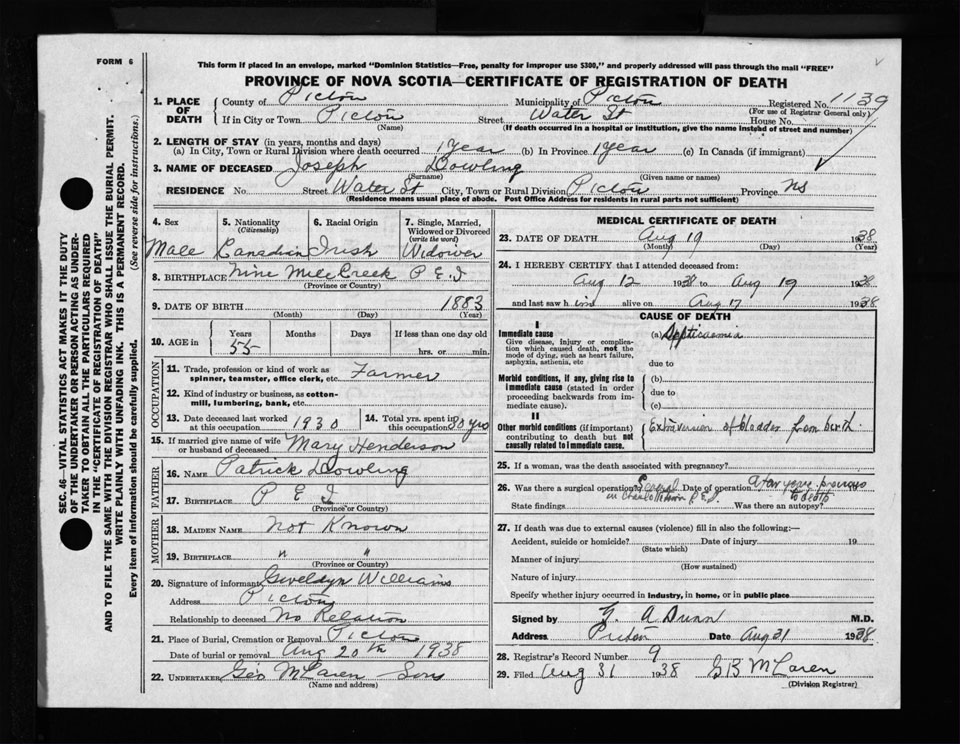 FORM 6
This form if placed in an envelope, marked "Dominion Statistics—Free, penalty for improper use $300," and properly addressed will pass through the mail "FREE"
PROVINCE OF NOVA SCOTIA—CERTIFICATE OF REGISTRATION OF DEATH
1. PLACE OF DEATH County of Pictou Municipality of Pictou Registered No. 1139
(For use of Registrar General only)
If in City or Town Pictou Street Water St House No.
(Name) (If death occurred in a hospital or institution, give the name instead of street and number)
2. LENGTH OF STAY (in years, months and days)
(a) In City, Town or Rural Division where death occurred 1 year (b) In Province 1 year (c) In Canada (if immigrant)
3. NAME OF DECEASED Joseph Dowling
(Surname) (Given name or names)
RESIDENCE No. Street Water St City, Town or Rural Division Pictou Province NS
(Residence means usual place of abode. Post Office Address for residents in rural parts not sufficient)
4. Sex 5. Nationality (Citizenship) 6. Racial Origin 7. Single, Married, Widowed or Divorced (write the word)
Male Canadian Irish Widower
8. BIRTHPLACE Nine Mile Creek P E I
(Province or Country)
9. DATE OF BIRTH 1883
(Month) (Day) (Year)
10. AGE in Years Months Days If less than one day old
55 hrs. or min.
OCCUPATION
11. Trade, profession or kind of work as spinner, teamster, office clerk, etc. Farmer
12. Kind of industry or business, as cotton-mill, lumbering, bank, etc.
13. Date deceased last worked at this occupation 1930 14. Total yrs. spent in this occupation 30 yrs
15. If married give name of wife or husband of deceased Mary Henderson
FATHER
16. NAME Patrick Dowling
17. BIRTHPLACE P E I
(Province or Country)
MOTHER
18. MAIDEN NAME Not Known
19. BIRTHPLACE " "
(Province or Country)
20. Signature of informant Williams
Address Pictou
Relationship to deceased No Relation
21. Place of Burial, Cremation or Removal Pictou
Date of burial or removal Aug 20th 1938
22. UNDERTAKER Geo McLaren Sons
(Name and address)
MEDICAL CERTIFICATE OF DEATH
23. DATE OF DEATH Aug 19 1938
(Month) (Day) (Year)
24. I HEREBY CERTIFY that I attended deceased from:
Aug 12 1938 to Aug 19 1938
and last saw him alive on Aug 17 1938
CAUSE OF DEATH
I
Immediate cause (a) Septicaemia
Give disease, injury or complication which caused death, not the mode of dying, such as heart failure, asphyxia, asthenia, etc
due to
Morbid conditions, if any, giving rise to immediate cause (stated in order proceeding backwards from immediate).
(b)
due to
(c)
II
Other morbid conditions (if important) contributing to death but not causally related to immediate cause.
Extraversion of bladder from birth.
25. If a woman, was the death associated with pregnancy?
26. Was there a surgical operation? Several in Charlottetown P.E.I. Date of operation a few years previous to death
State findings Was there an autopsy?
27. If death was due to external causes (violence) fill in also the following:—
Accident, suicide or homicide? Date of injury 19
(State which)
Manner of injury
(How sustained)
Nature of injury
Specify whether injury occurred in industry, in home, or in public place
Signed by A Dunn M.D.
Address Pictou Date Aug 31 1938
28. Registrar's Record Number 9
29. Filed Aug 31 1938 G B McLaren
(Division Registrar)
SEC. 46—VITAL STATISTICS ACT MAKES IT THE DUTY
OF THE UNDERTAKER OR PERSON ACTING AS UNDER-
TAKER TO OBTAIN ALL THE PARTICULARS REQUIRED
IN THE "CERTIFICATE OF REGISTRATION OF DEATH"
AND TO FILE THE SAME WITH THE DIVISION REGISTRAR WHO SHALL ISSUE THE BURIAL PERMIT.
WRITE PLAINLY WITH UNFADING INK. THIS IS A PERMANENT RECORD.
Every item of information should be carefully supplied. (See reverse side for instructions.)